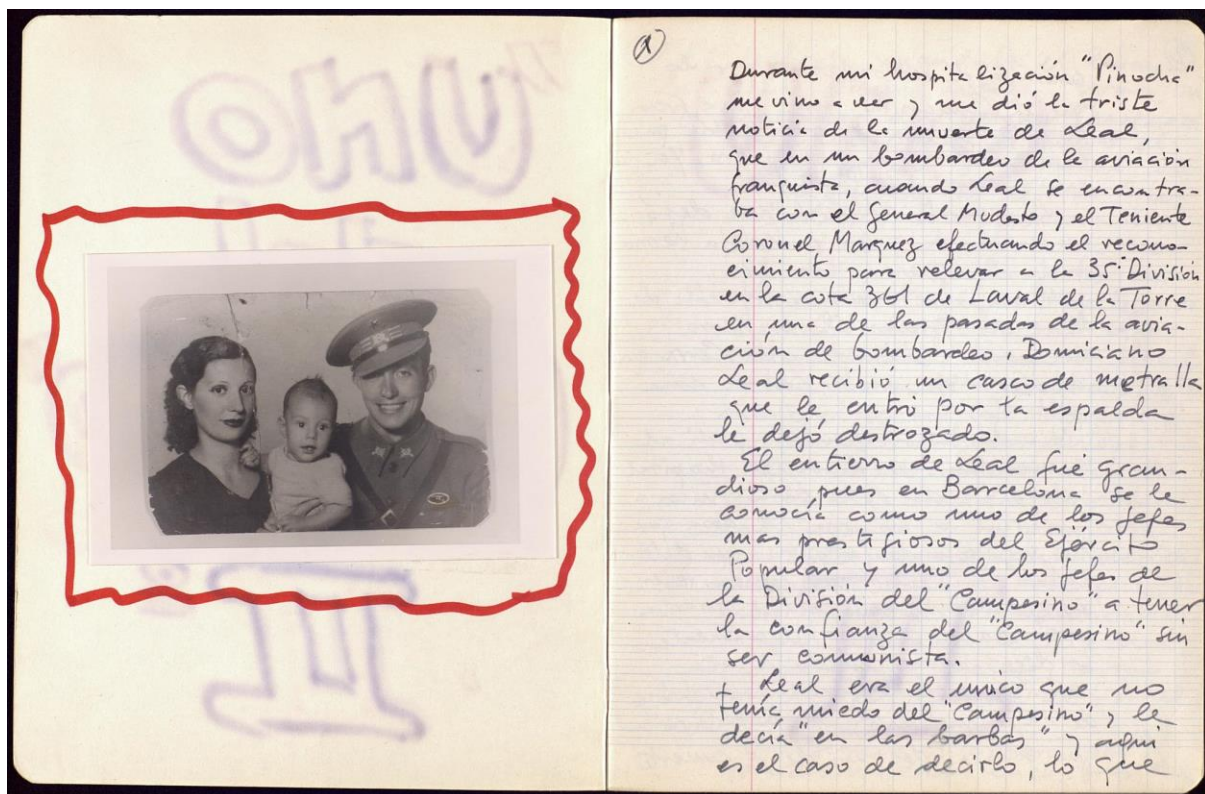 Durante mi hospitalización "Pinocha"
me vino a ver y me dió la triste
noticia de la muerte de Leal,
que en un bombardeo de la aviación
franquista, cuando Leal se encontra-
ba con el General Modesto y el Teniente
Coronel Marquez efectuando el recono-
cimiento para relevar a la 35ª División
en la cota 361 de Laval de la Torre
en una de las pasadas de la avia-
ción de bombardeo, Domiciano
Leal recibió un casco de metralla
que le entró por la espalda
le dejó destrozado.
El entierro de Leal fué gran-
dioso pues en Barcelona se le
conocía como uno de los jefes
mas prestigiosos del Ejército
Popular y uno de los jefes de
la División del "Campesino" a tener
la confianza del "Campesino" sin
ser comunista.
+ Leal era el unico que no
tenía miedo del "Campesino" y le
decía "en las barbas" y aqui
es el caso de decirlo, lo que